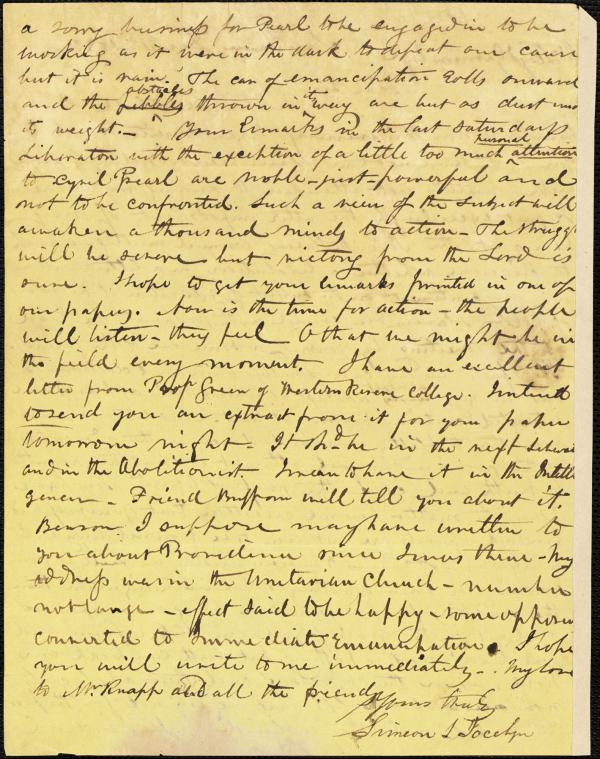 a sorry business for Pearl to be engaged in to be
working as it were in the dark to defeat our cause
but it is vain. The car of emancipation rolls onward
and the obstacles pebbles thrown in its way are but as dust under
its weight. — Your Remarks in the last Saturdays
Liberator with the exception of a little too much personal attention
to Cyril Pearl are noble - just - powerful and
not to be confronted. Such a view of the subject will
awaken a thousand minds to action - The struggle
will be severe but victory from the Lord is
sure. I hope to get your remarks printed in one of
our papers. Now is the time for action - the people
will listen - they feel O that we might be in
the field every moment. I have an excellent
letter from Prof Green of Western Reserve College. I intend
to send you an extract from it for your paper
tomorrow night - It shd be in the next Liberator
and in the Abolitionist. I mean to have it in the Intelli
gencer - Friend Buffum will tell you about it.
Benson I suppose may have written to
you about Providence since I was there - My
address was in the Unitarian Church - number
not large - effect said to be happy - some opposers
converted to Immediate Emancipation. I hope
you will write to me immediately - My love
to Mr Knapp and all the friends
Yours truly
Simeon S Jocelyn